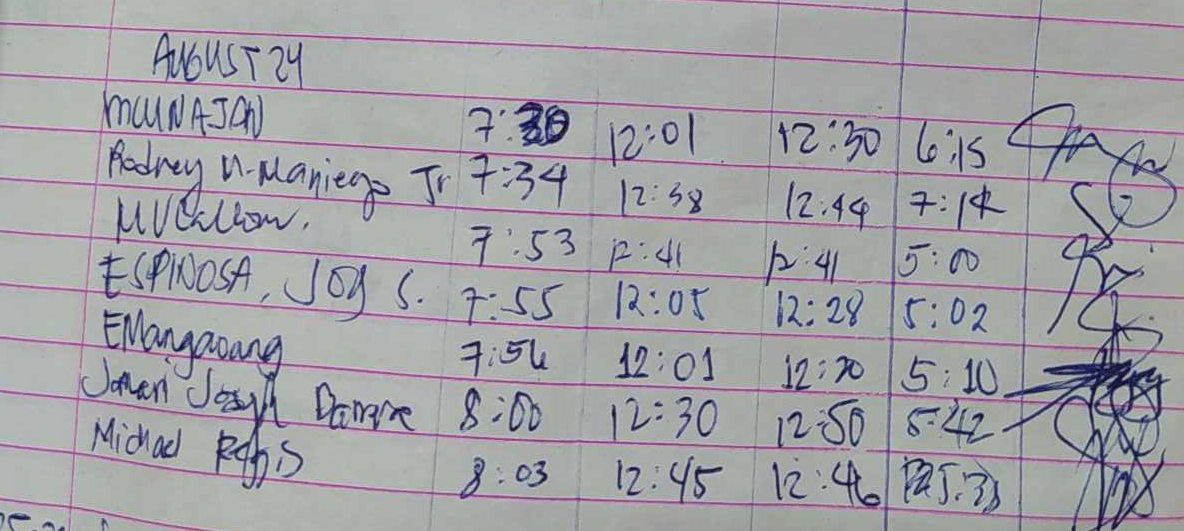 AUGUST 24
7:30 12:01 12:30 6:15
Rodney N. Maniego Jr 7:34 12:38 12:44 7:14
7:53 12:41 12:41 5:00
ESPINOSA, Joy S. 7:55 12:05 12:28 5:02
EMangaoang 7:56 12:01 12:30 5:10
Joseph 8:00 12:30 12:50 5:42
Michael 8:03 12:45 12:46